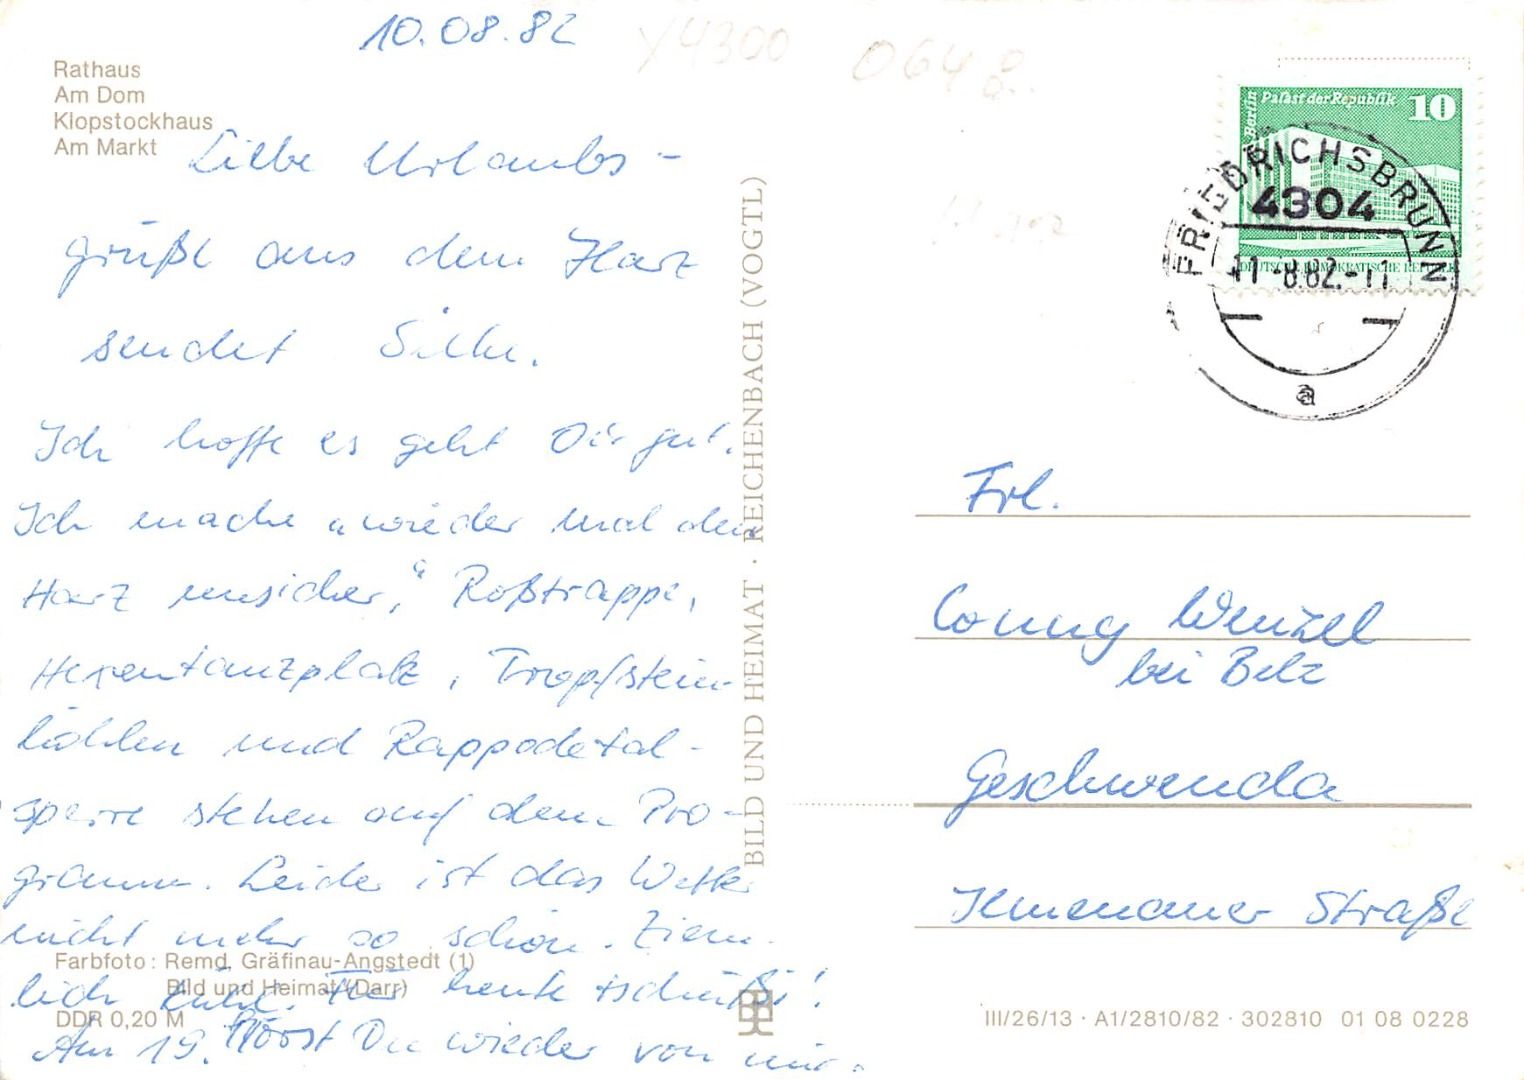 10.08.82
Rathaus
Am Dom
Klopstockhaus
Am Markt
Liebe Urlaubs-
grüße aus dem Harz
sendet Silke.
Ich hoffe es geht Dir gut.
Ich mache "wieder mal den
Harz unsicher," Roßtrappe,
Hexentanzplatz, Tropfstein-
höhlen und Rappodetal-
sperre stehen auf dem Pro-
gramm. Leider ist das Wetter
nicht mehr so schön. Ziem-
lich kühl. Für heute tschüßi!
Am 19. hörst Du wieder von mir.
Farbfoto: Remd, Gräfinau-Angstedt (1)
Bild und Heimat (Darr)
DDR 0,20 M
BILD UND HEIMAT · REICHENBACH (VOGTL)
Y4300 0648
Berlin Palast der Republik 10
DEUTSCHE DEMOKRATISCHE REPUBLIK
FRIEDRICHSBRUNN
4304
11-8.82.-11
a
Frl.
Conny Wenzel
bei Belz
Geschwenda
Ilmenauer Straße
III/26/13 · A1/2810/82 · 302810 01 08 0228